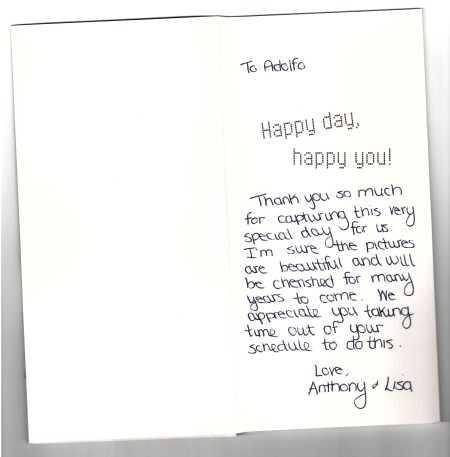 To Adolfo
Happy day,
happy you!
Thank you so much
for capturing this very
special day for us.
I'm sure the pictures
are beautiful and will
be cherished for many
years to come. We
appreciate you taking
time out of your
schedule to do this.
Love,
Anthony & Lisa